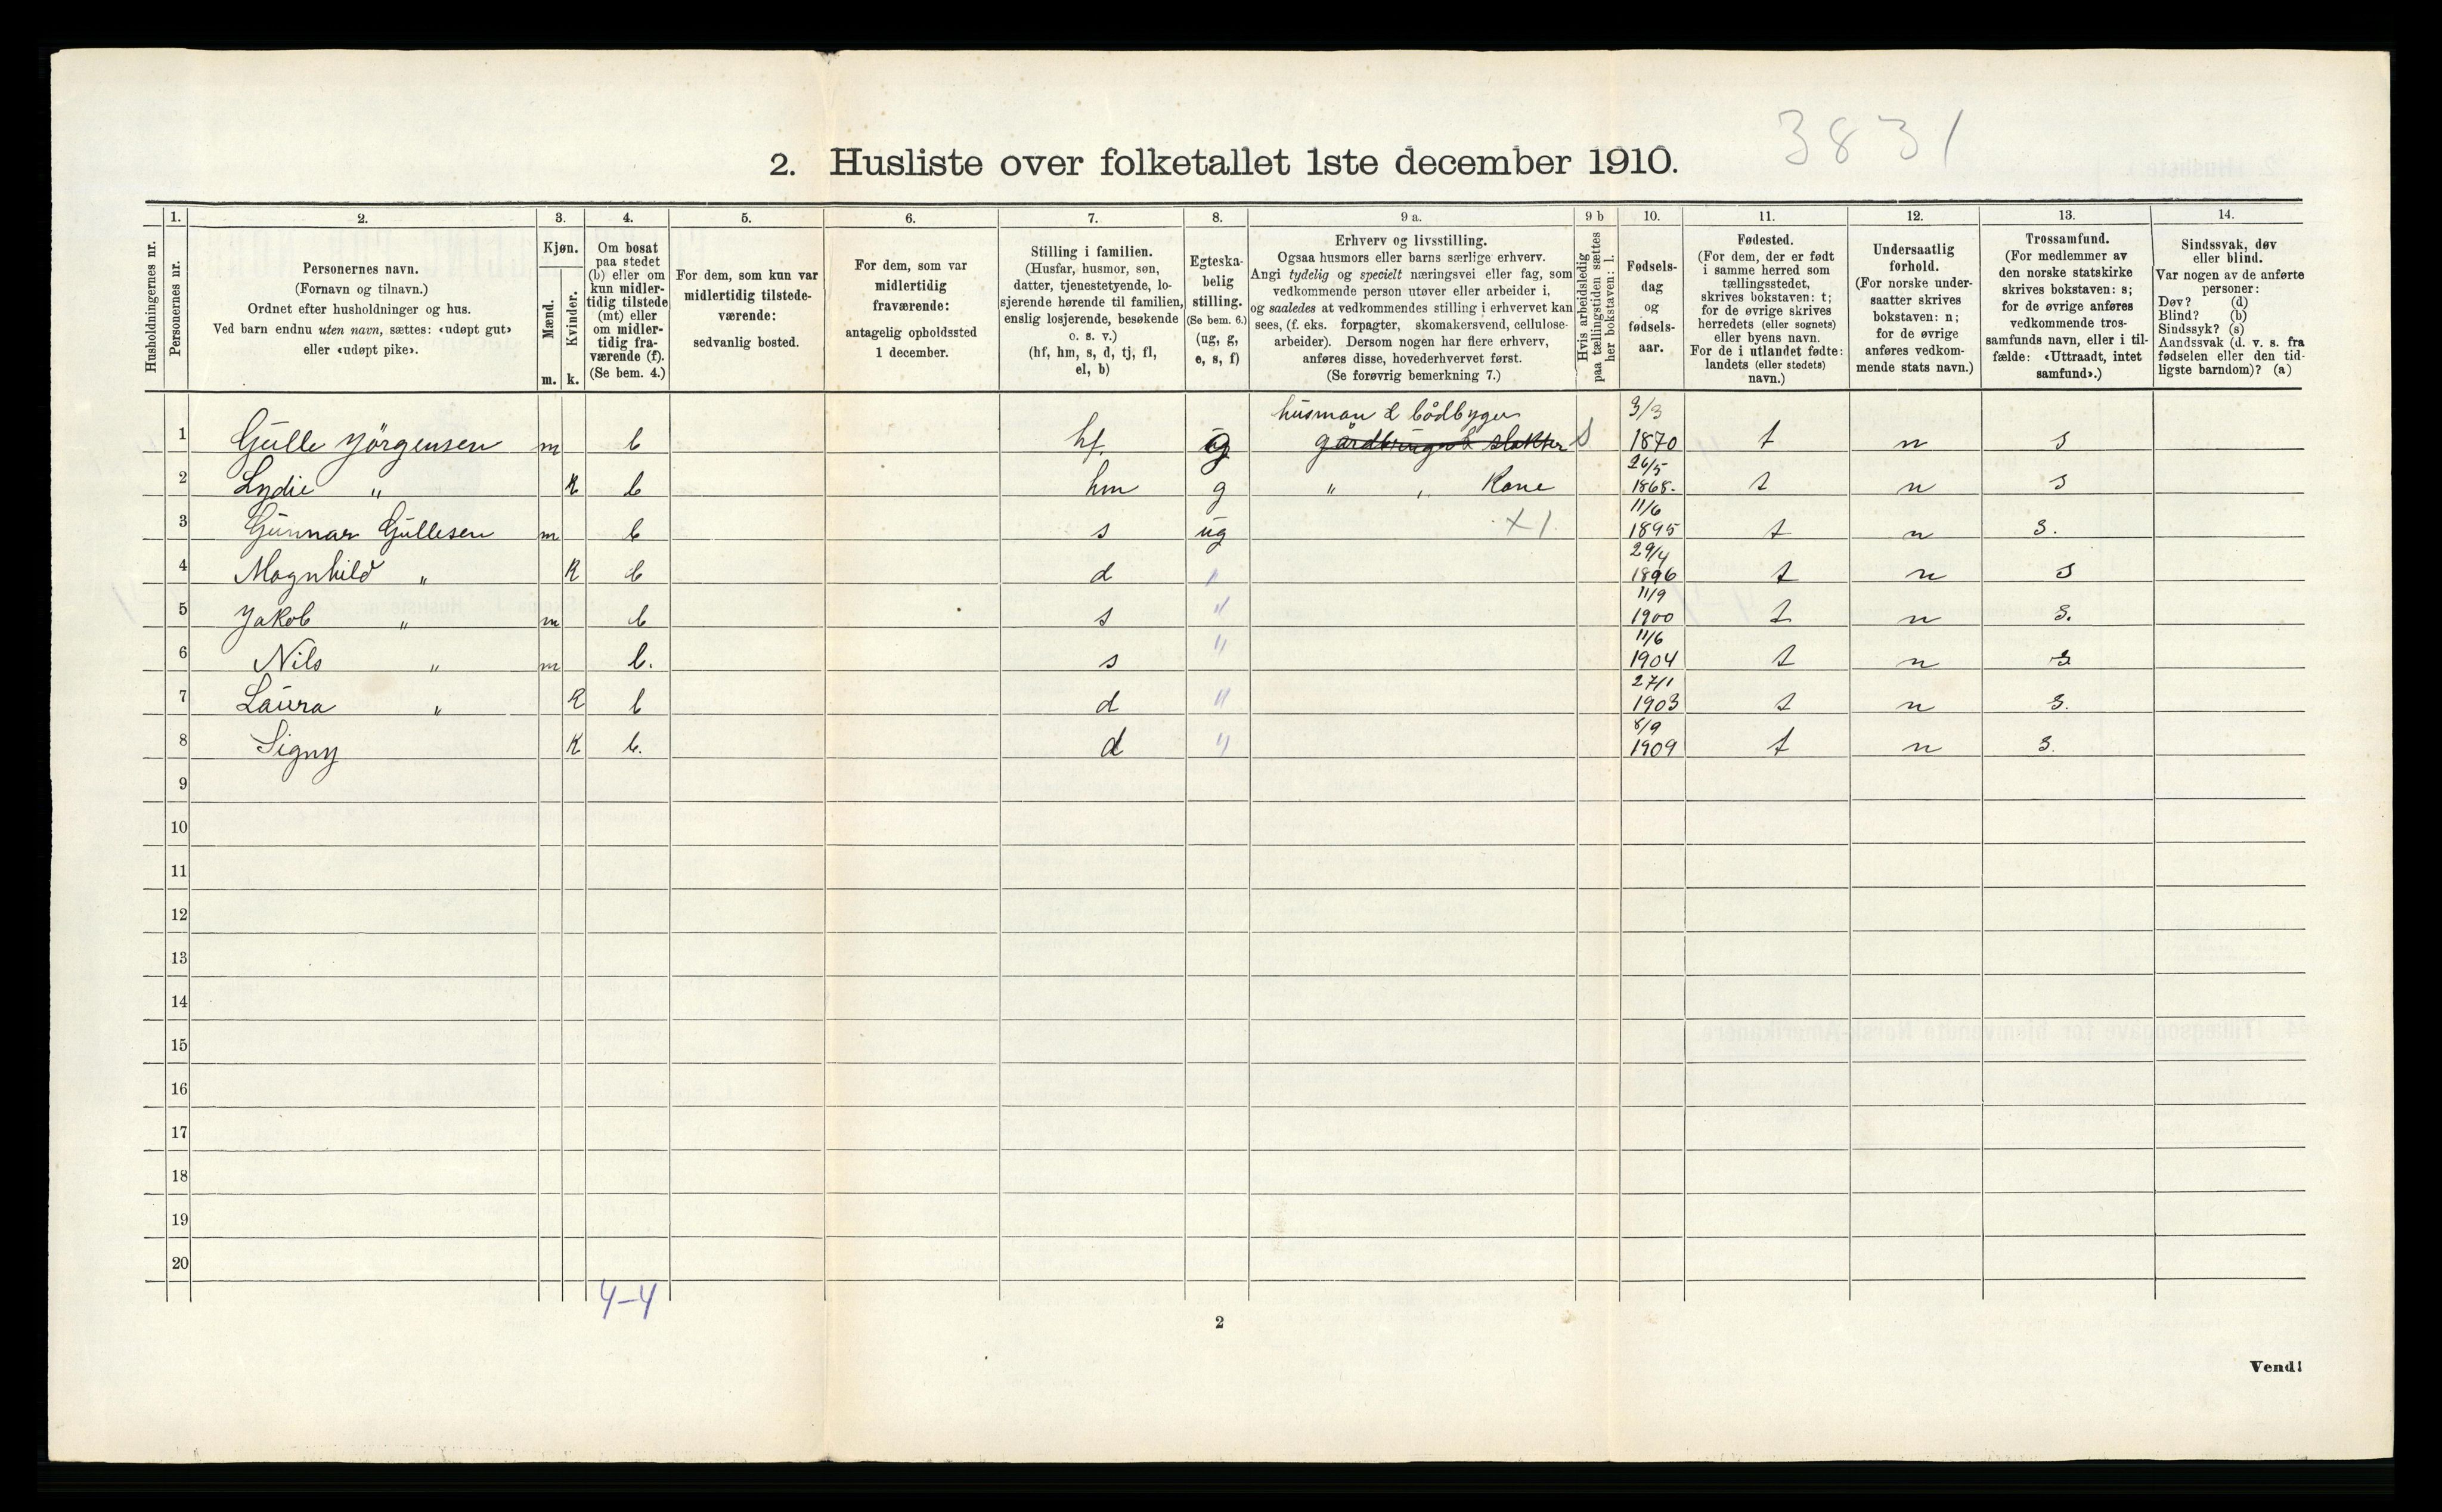 3831
2. Husliste over folketallet 1ste december 1910.
Husholdningernes nr.
1.
Personernes nr.
2.
Personernes navn.
(Fornavn og tilnavn.)
Ordnet efter husholdninger og hus.
Ved barn endnu uten navn, sættes: «udøpt gut»
eller «udøpt pike».
3.
Kjøn.
Mænd.
Kvinder.
m. k.
4.
Om bosat
paa stedet
(b) eller om
kun midler-
tidig tilstede
(mt) eller
om midler-
tidig fra-
værende (f).
(Se bem. 4.)
5.
For dem, som kun var
midlertidig tilstede-
værende:
sedvanlig bosted.
6.
For dem, som var
midlertidig
fraværende:
antagelig opholdssted
1 december.
7.
Stilling i familien.
(Husfar, husmor, søn,
datter, tjenestetyende, lo-
sjerende hørende til familien,
enslig losjerende, besøkende
o. s. v.)
(hf, hm, s, d, tj, fl,
el, b)
8.
Egteska-
belig
stilling.
(Se bem. 6.)
(ug, g,
e, s, f)
9 a.
Erhverv og livsstilling.
Ogsaa husmors eller barns særlige erhverv.
Angi tydelig og specielt næringsvei eller fag, som
vedkommende person utøver eller arbeider i,
og saaledes at vedkommendes stilling i erhvervet kan
sees, (f. eks. forpagter, skomakersvend, cellulose-
arbeider). Dersom nogen har flere erhverv,
anføres disse, hovederhvervet først.
(Se forøvrig bemerkning 7.)
9 b
Hvis arbeidsledig
paa tællingstiden sættes
her bokstaven: l.
10.
Fødsels-
dag
og
fødsels-
aar.
11.
Fødested.
(For dem, der er født
i samme herred som
tællingsstedet,
skrives bokstaven: t;
for de øvrige skrives
herredets (eller sognets)
eller byens navn.
For de i utlandet fødte:
landets (eller stedets)
navn.)
12.
Undersaatlig
forhold.
(For norske under-
saatter skrives
bokstaven: n;
for de øvrige
anføres vedkom-
mende stats navn.)
13.
Trossamfund.
(For medlemmer av
den norske statskirke
skrives bokstaven: s;
for de øvrige anføres
vedkommende tros-
samfunds navn, eller i til-
fælde: «Uttraadt, intet
samfund».)
14.
Sindssvak, døv
eller blind.
Var nogen av de anførte
personer:
Døv? (d)
Blind? (b)
Sindssyk? (s)
Aandssvak (d. v. s. fra
fødselen eller den tid-
ligste barndom)? (a)
husman & bådbyger 3/3
1 Gulle Jörgensen m b hf. g gårdbruger & slakter S 1870 t n s
26/5
2 Lydie " K b hm g " " Kone 1868. t n s
11/6
3 Gunnar Gullesen m b s ug X1. 1895 t n s.
29/4
4 Magnhild " K b d " 1896 t n s
11/9
5 Jakob " m b s " 1900 t n s.
11/6
6 Nils " m b. s " 1904 t n s
27/1
7 Laura " K b d " 1903 t n s.
8/9
8 Signy K b. d " 1909 t n s.
9
10
11
12
13
14
15
16
17
18
19
20
4-4
2
Vend!